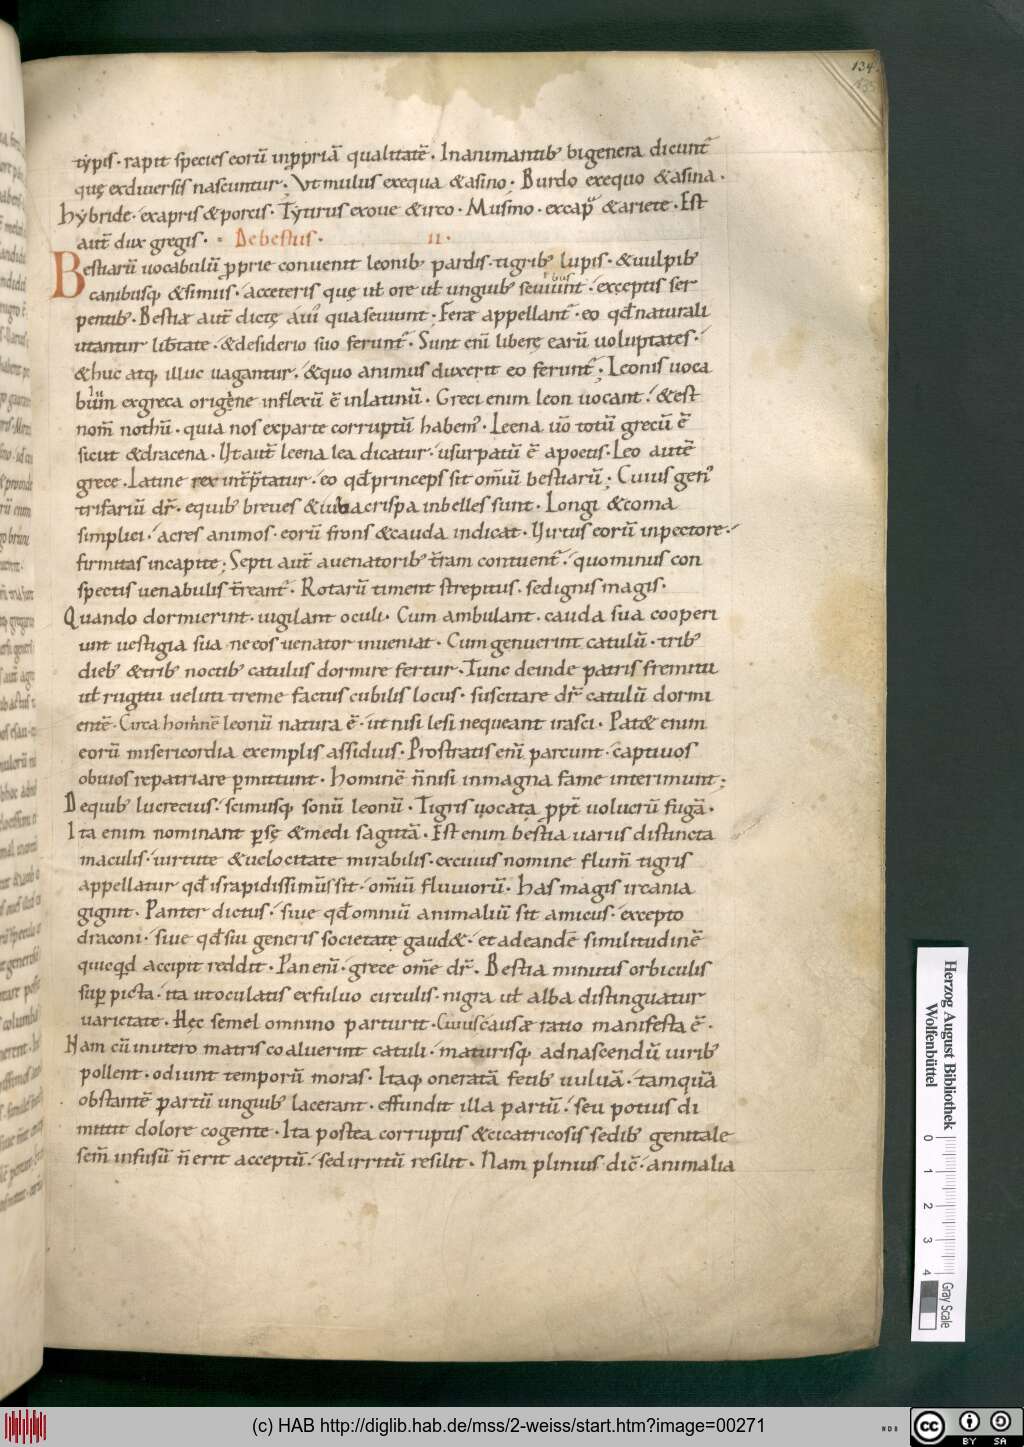 134
typis · rapit species eorū inppriā qualitatē · Inanimantib; bigenera dicunt᷑
quę exdiuersis nascuntur; Vt mulus exequa &asino · Burdo exequo &asina ·
hybride · exapris &porcis · Tytirus exoue &irco · Musimo · excap̃ &ariete · Est
aut̄ dux gregis · Debestiis · II ·
Bestiarū uocabulū pprie conuenit leonib; pardis · tigrib; lupis · &uulpib;
canibusq; &simiis · &ceteris quę ul̄ ore ul̄ unguib; seuiunt · exceptis ser
pentib; · Bestiæ aut̄ dictę a ui qua seuiunt; Feræ appellant᷑ · eo qđ naturali
utantur lib̄tate · &desiderio suo ferunt᷑ · Sunt eni᷑ liberę earū uoluptates ·
&huc atq; illuc uagantur · &quo animus duxerit eo ferunt᷑; Leonis uoca
bu᷑m exgreca origine inflexū ē inlatinū · Greci enim leon uocant · &est
nom̄ nothū · quia nos exparte corruptū habem᷒ · Leena uō totū grecū ē
sicut &dracena · Ut aut̄ leena lea dicatur · usurpatū ē apoetis · Leo autē
grece · Latine rex int̄p̄tatur · eo qđ princeps sit om̄iū bestiarū; Cuius gen᷒
trifariū dr̄ · equib; breues &iuba crispa inbelles sunt · Longi &coma
simplici · acres animos · eorū frons &cauda indicat · Uirtus eorū inpectore ·
firmitas incapite; Septi aut̄ auenatorib; t̄ram contuent᷑ · quominus con
spectis uenabulis t̄reant᷑ · Rotarū timent strepitus · sedignis magis ·
Quando dormierint · uigilant oculi · Cum ambulant · cauda sua cooperi
unt uestigia sua · ne eos uenator inueniat · Cum genuerint catulū · trib;
dieb; &trib; noctib; catulus dormire fertur · Tunc deinde patris fremitu
ul̄ rugitu ueluti treme factus cubilis locus · suscitare dr̄ catulū dormi
entē · Circa hominē leonū natura ē · ut nisi lesi nequeant irasci · Pat& enim
eorū misericordia exemplis assiduis · Prostratis eni᷑ parcunt · captiuos
obuios repatriare p̱mittunt · hominē n̄nisi inmagna fame interimunt;
Dequib; lucrecius · scimusq; sonū leonū · Tigris uocata ppt̄ uolucrū fugā ·
Ita enim nominant p̱sę &medi sagittā · Est enim bestia uarus distincta
maculis · uirtute &uelocitate mirabilis · excuius nomine flum̄ tigris
appellatur qđ is rapidissimus sit · om̄iū fluuiorū · has magis ircania
gignit · Panter dictus · siue qđ omniū animaliū sit amicus · excepto
draconi · siue qđ sui generis societatę gaud& · et adeandē similitudinē
quicqđ accipit reddit · Pan eni᷑ · grece om̄e dr̄ · Bestia minutis orbiculis
sup̱ picta · ita ut oculatis exfuluo circulis · nigra ul̄ alba distinguatur
uarietate · Hęc semel omnino parturit · Cuius causæ ratio manifesta ē ·
Nam cū inutero matris coaluerint catuli · maturisq; adnascendū uirib;
pollent · odiunt temporū moras · Itaq; oneratā fetib; uuluā · tamquā
obstantē p̱artū unguib; lacerant · effundit illa partū · seu potius di
mittit dolore cogente · Ita postea corruptis &cicatricosis sedib; genitale
sem̄ infusū n̄ erit acceptū · sed irritū resilit · Nam plinius dic̄ · animalia
Herzog August Bibliothek
Wolfenbüttel
0 1 2 3 4
Gray Scale
(c) HAB http://diglib.hab.de/mss/2-weiss/start.htm?image=00271
cc BY SA